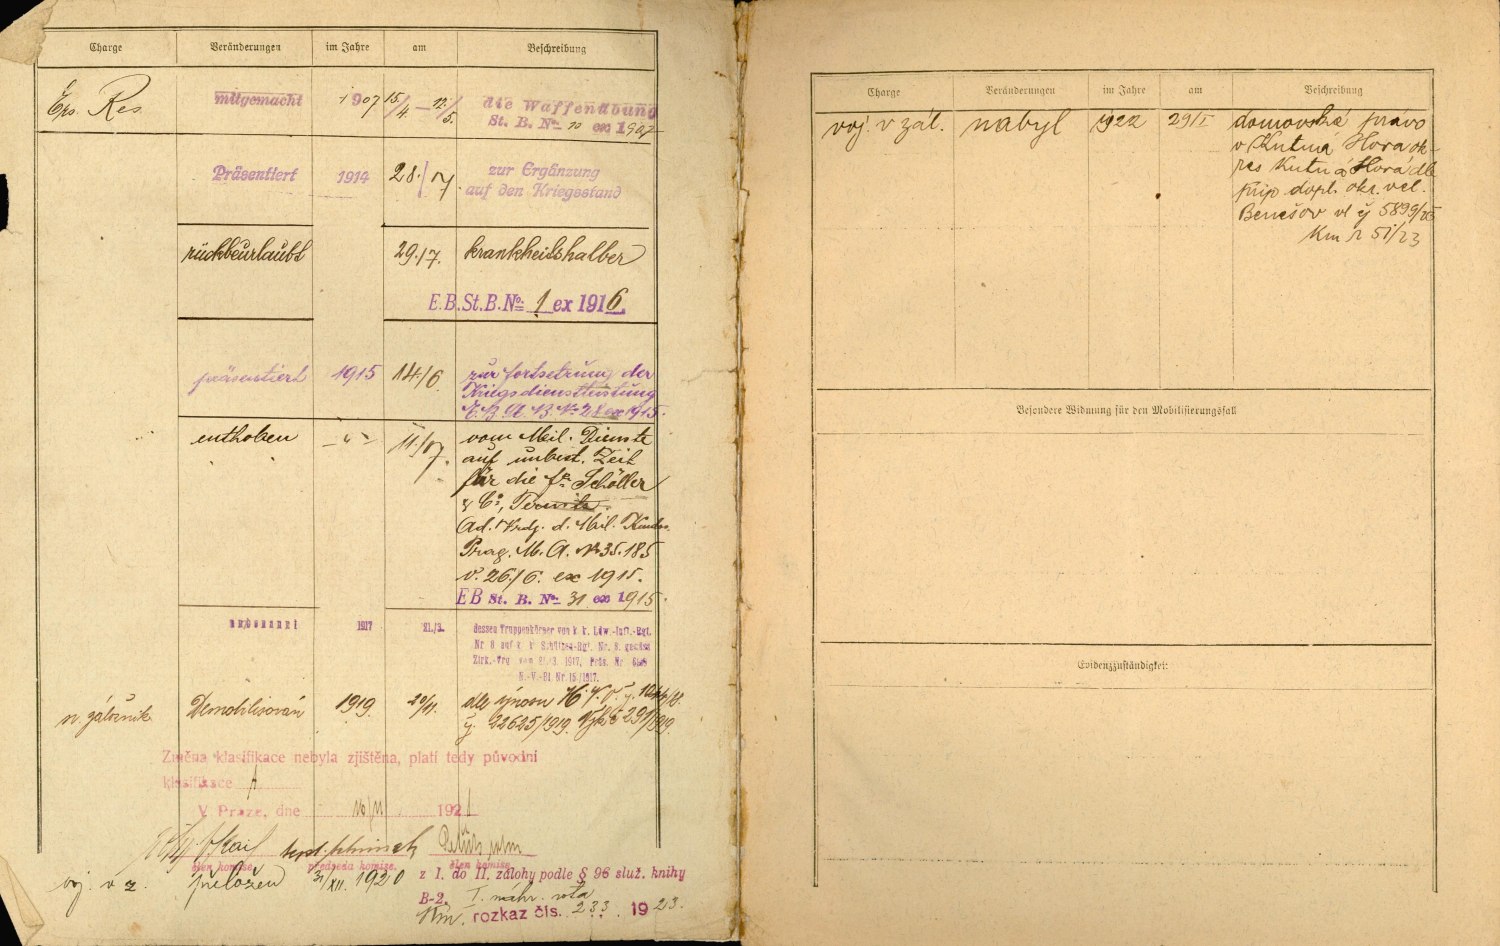 Charge Veränderungen im Jahre am Beschreibung
Ers. Res. mitgemacht 1907 15/4 – 12/5. die Waffenübung
St. B. No. 10 ex 1907
Präsentiert 1914 28./7. zur Ergänzung
auf den Kriegsstand
rückbeurlaubt 29./7. krankheitshalber
E.B.St.B.No. 1 ex 1916.
präsentiert 1915 14./6. zur Fortsetzung der
Kriegsdienstleistung
28 ex 1915.
enthoben – " – 11./7. vom Mil. Dienste
auf unbest. Zeit
für die Fa. Schöller
& Co,
d. Mil. Kmdos.
Prag. M. A. No 35.185
v. 26./6. ex 1915.
EB St. B. No. 31 ex 1915.
1917 21./3. dessen Truppenkörper von k. k. Ldw.-Inft.-Rgt.
Nr 8 auf k. k. Schützen-Rgt. Nr. 8. gemäss
Zirk.-Vrg vom 21./3. 1917, Präs. Nr
N.-V.-Bl. Nr. 15./1917.
n. záložník Demobilisován 1919. 20/11. dle výnosu
č. 22625/1919.
Změna klasifikace nebyla zjištěna, platí tedy původní
klasifikace A
V Praze, dne 10/11 1921
člen komise předseda komise. člen komise
voj. v z. přeložen 31/XII. 1920 z I. do II. zálohy podle § 96 služ. knihy
B-2. I. náhr. rota
Km. rozkaz čís. 233. 1923.
Charge Veränderungen im Jahre am Beschreibung
voj. v zál. nabyl 1922 29/I domovská právo
v Kutná Hora ok-
res Kutná Hora dle
příp. dopl. okr. vel.
Benešov vl č 5899/23
Km r 51/23
Besondere Widmung für den Mobilisierungsfall
Evidenzzuständigkeit